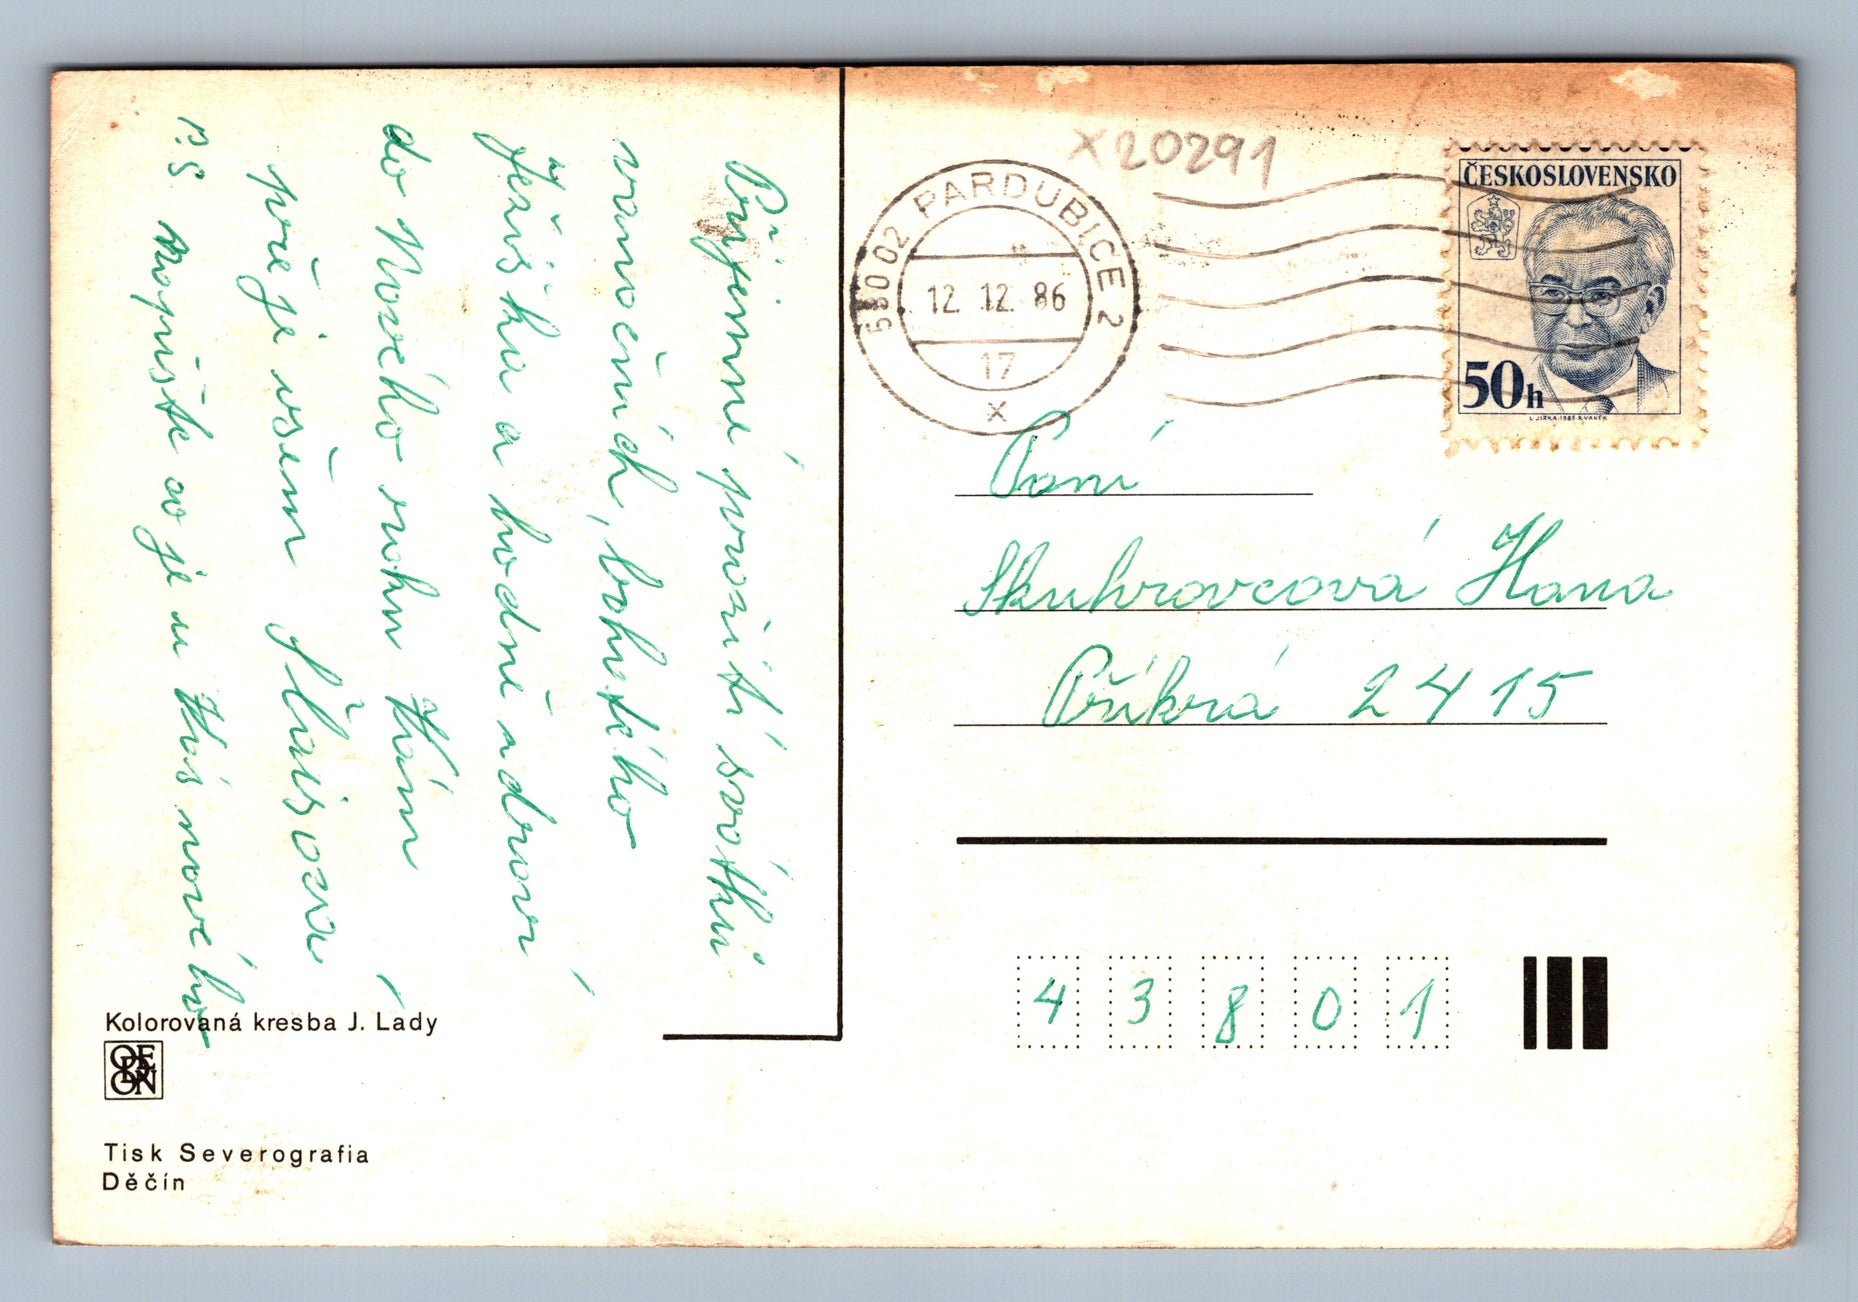 Příjemné prožití svátků
vanočních, bohatého
Ježiška a hodně zdraví
do Nového roku Vám
přeje všem
P.S Napište co je u Vás nového
Kolorovaná kresba J. Lady
ODEON
Tisk Severografia
Děčín
X20291
530 02 PARDUBICE 2
12. 12. 86
17
x
ČESKOSLOVENSKO
50h
L. JIRKA-1985-R. VANĚK
Paní
Skuhravcová Hana
Příkrá 2415
43801